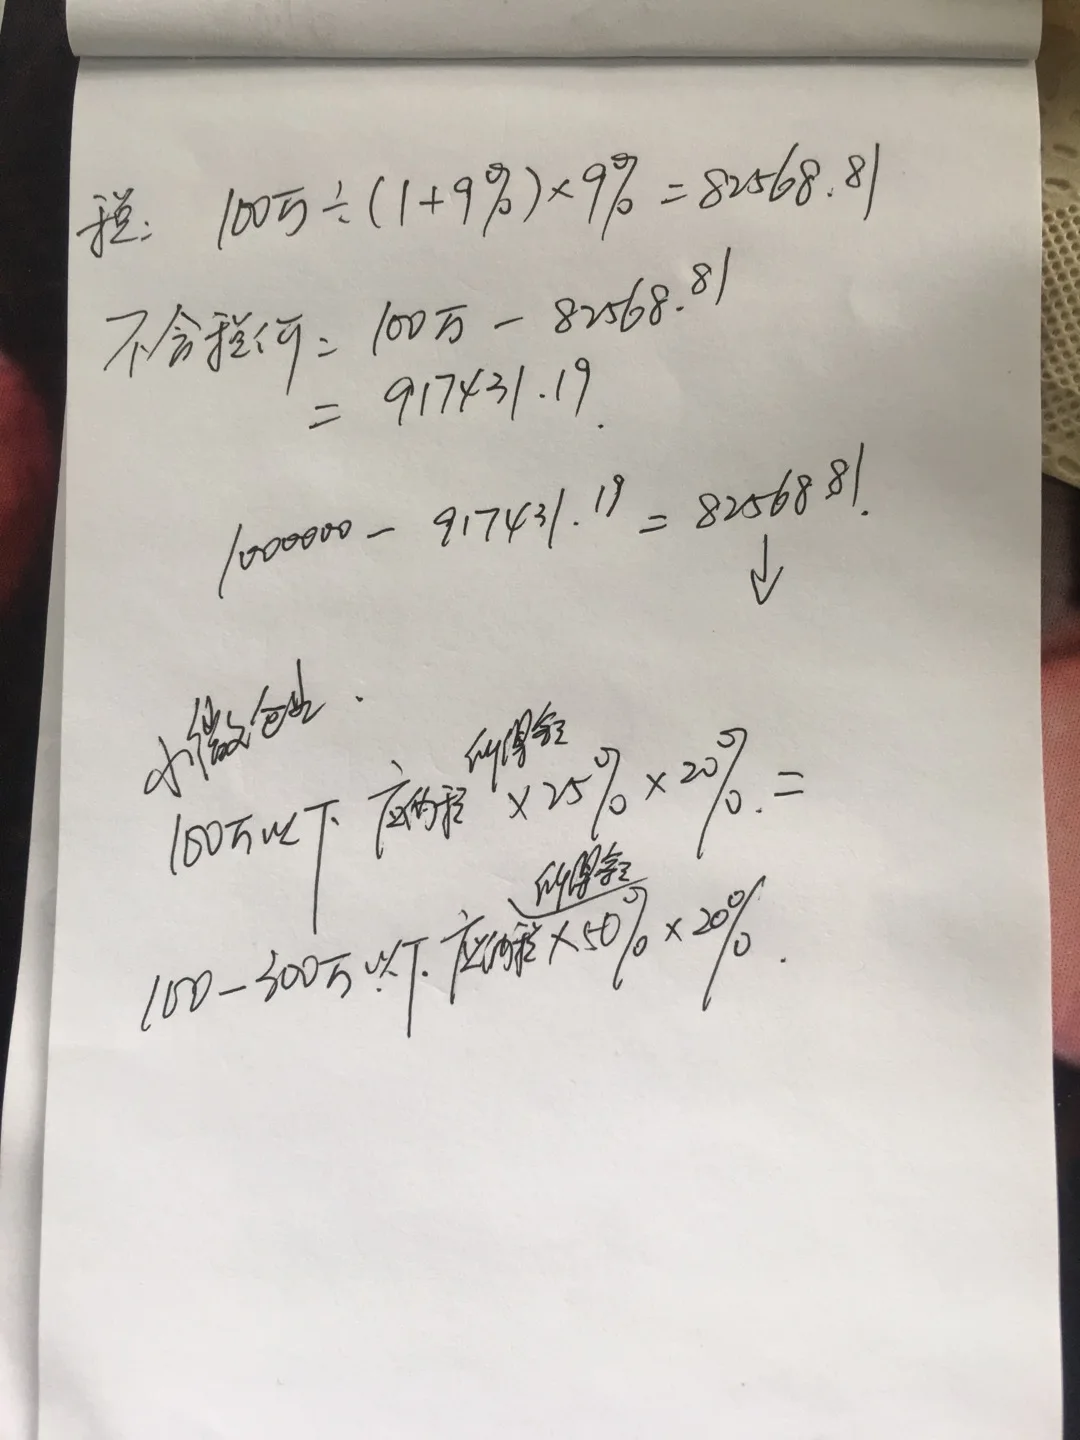 税: 100万÷(1+9%)×9%=82568.81
不含税价=100万-82568.81
=917431.19.
1000000-917431.19=82568.81.
↓
小微企业.
100万以下 应纳税所得额×25%×20%.=
100-300万以下.应纳税所得额×50%×20%.